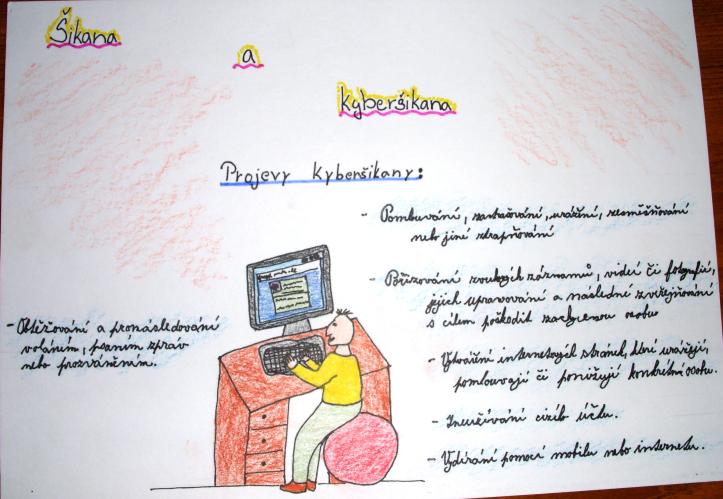 Šikana
a
kyberšikana
Projevy kyberšikany:
- Pomlouvání, zastrašování, urážení, zesměšňování
nebo jiné ztrapňování
- Pořizování zvukových záznamů, videí či fotografií,
jejich upravování a následné zveřejňování
s cílem poškodit zachycenou osobu
- Vytváření internetových stránek, které urážejí,
pomlouvají či ponižují konkrétní osobu.
- Zneužívání cizího účtu.
- Vydírání pomocí mobilu nebo internetu.
- Obtěžování a pronásledování
voláním, psaním zpráv
nebo prozváněním.